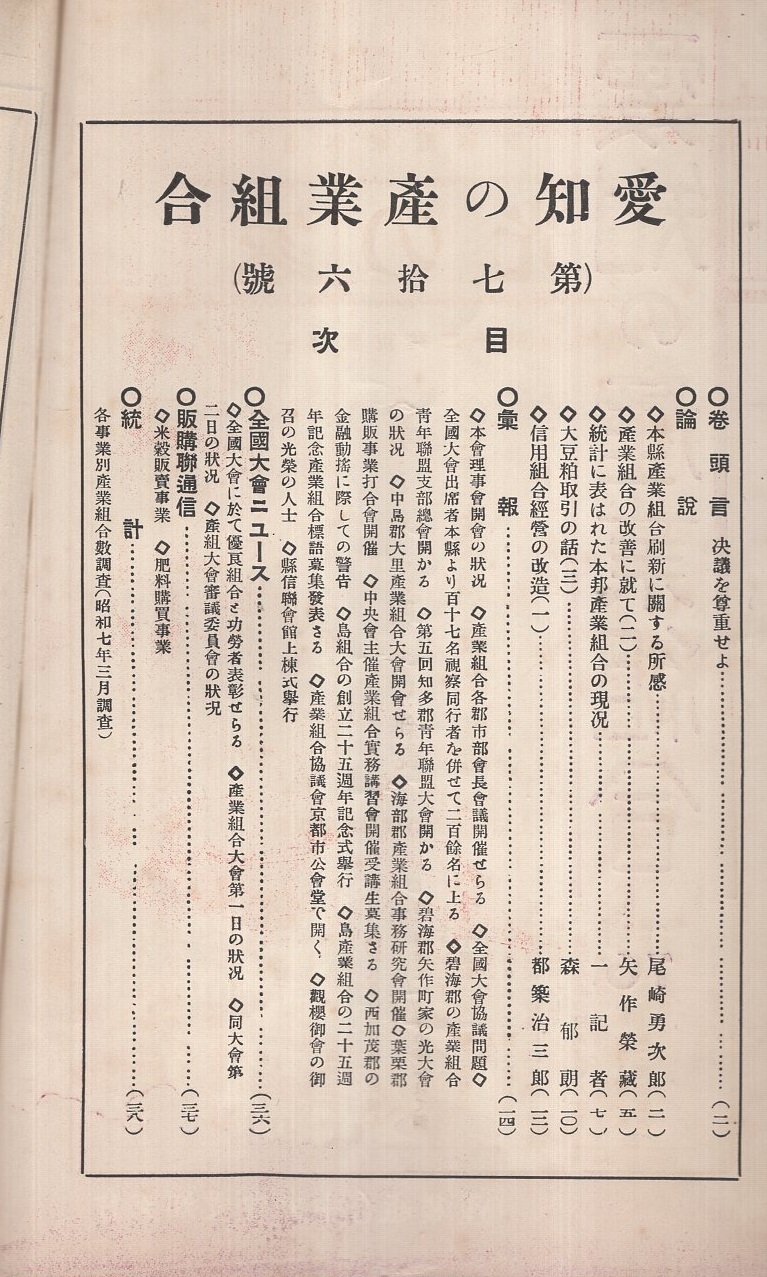 愛知の產業組合
(第七拾六號)
目次
○卷頭言 決議を尊重せよ……(一)
○論說
◇本縣產業組合刷新に關する所感……尾崎勇次郎(二)
◇產業組合の改善に就て(二)……矢作榮藏(五)
◇統計に表はれた本邦產業組合の現況……一記者(七)
◇大豆粕取引の話(三)……森郁朗(一〇)
◇信用組合經營の改造(一)……都築治三郞(一二)
○彙報……(一四)
◇本會理事會開會の狀況 ◇產業組合各郡市部會長會議開催せらる ◇全國大會協議問題◇
全國大會出席者本縣より百十七名視察同行者を併せて二百餘名に上る ◇碧海郡の產業組合
靑年聯盟支部總會開かる ◇第五回知多郡靑年聯盟大會開かる ◇碧海郡矢作町家の光大會
の狀況 ◇中島郡大里產業組合大會開會せらる ◇海部郡產業組合事務硏究會開催◇葉栗郡
購販事業打合會開催 ◇中央會主催產業組合實務講習會開催受講生募集さる ◇西加茂郡の
金融動搖に際しての警告 ◇島組合の創立二十五週年記念式擧行 ◇島產業組合の二十五週
年記念產業組合標語募集發表さる ◇產業組合協議會京都市公會堂で開く ◇觀櫻御會の御
召の光榮の人士 ◇縣信聯會館上棟式擧行
○全國大會ニユース……(三六)
◇全國大會に於て優良組合と功勞者表彰せらる ◇產業組合大會第一日の狀況 ◇同大會第
二日の狀況 ◇產組大會審議委員會の狀況
○販購聯通信……(三七)
◇米穀販賣事業 ◇肥料購買事業
○統計……(三八)
各事業別產業組合數調査(昭和七年三月調查)